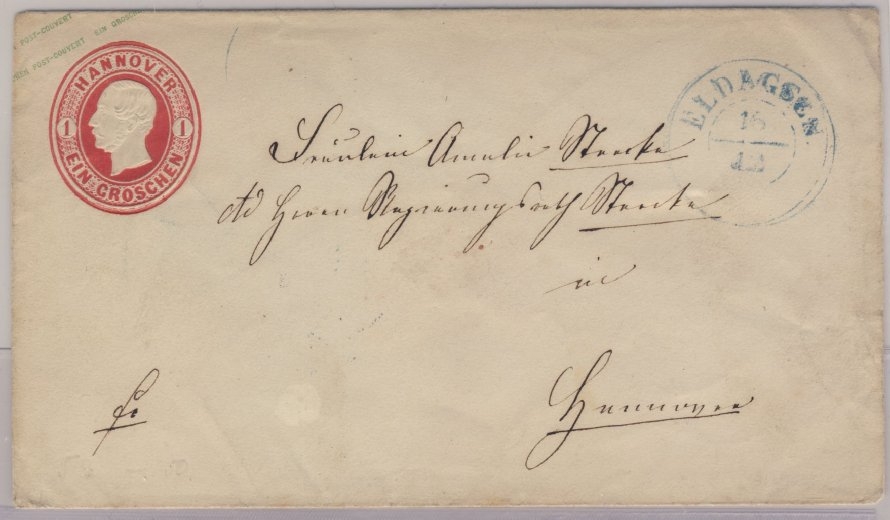 POST-COUVERT EIN GROSCHEN
CHEN POST-COUVERT
HANNOVER
1 1
EIN GROSCHEN
ELDAGSEN
18
12
Fräulein Amalie Starcke
Ad Herrn Regierungsrath Starcke
in
Hannover
fr